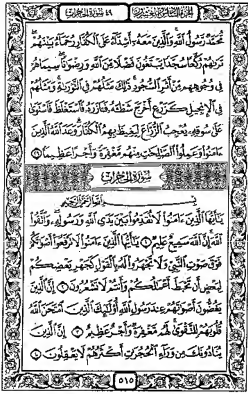 الجزء السادس والعشرون ٤٩ سورة الحجرات
مُّحَمَّدٌ رَّسُولُ اللَّهِ وَالَّذِينَ مَعَهُ أَشِدَّاءُ عَلَى الْكُفَّارِ رُحَمَاءُ بَيْنَهُمْ
تَرَاهُمْ رُكَّعًا سُجَّدًا يَبْتَغُونَ فَضْلًا مِّنَ اللَّهِ وَرِضْوَانًا سِيمَاهُمْ
فِي وُجُوهِهِم مِّنْ أَثَرِ السُّجُودِ ذَٰلِكَ مَثَلُهُمْ فِي التَّوْرَاةِ وَمَثَلُهُمْ
فِي الْإِنجِيلِ كَزَرْعٍ أَخْرَجَ شَطْأَهُ فَآزَرَهُ فَاسْتَغْلَظَ فَاسْتَوَىٰ
عَلَىٰ سُوقِهِ يُعْجِبُ الزُّرَّاعَ لِيَغِيظَ بِهِمُ الْكُفَّارَ وَعَدَ اللَّهُ الَّذِينَ
ءَامَنُوا وَعَمِلُوا الصَّالِحَاتِ مِنْهُم مَّغْفِرَةً وَأَجْرًا عَظِيمًا ٢٩
سُورَةُ الحُجُرَاتِ
بِسْمِ اللَّهِ الرَّحْمَٰنِ الرَّحِيمِ
يَا أَيُّهَا الَّذِينَ ءَامَنُوا لَا تُقَدِّمُوا بَيْنَ يَدَيِ اللَّهِ وَرَسُولِهِ وَاتَّقُوا
اللَّهَ إِنَّ اللَّهَ سَمِيعٌ عَلِيمٌ ١ يَا أَيُّهَا الَّذِينَ ءَامَنُوا لَا تَرْفَعُوا أَصْوَاتَكُمْ
فَوْقَ صَوْتِ النَّبِيِّ وَلَا تَجْهَرُوا لَهُ بِالْقَوْلِ كَجَهْرِ بَعْضِكُمْ
لِبَعْضٍ أَن تَحْبَطَ أَعْمَالُكُمْ وَأَنتُمْ لَا تَشْعُرُونَ ٢ إِنَّ الَّذِينَ
يَغُضُّونَ أَصْوَاتَهُمْ عِندَ رَسُولِ اللَّهِ أُولَٰئِكَ الَّذِينَ امْتَحَنَ اللَّهُ
قُلُوبَهُمْ لِلتَّقْوَىٰ لَهُم مَّغْفِرَةٌ وَأَجْرٌ عَظِيمٌ ٣ إِنَّ الَّذِينَ
يُنَادُونَكَ مِن وَرَاءِ الْحُجُرَاتِ أَكْثَرُهُمْ لَا يَعْقِلُونَ ٤
٥١٥